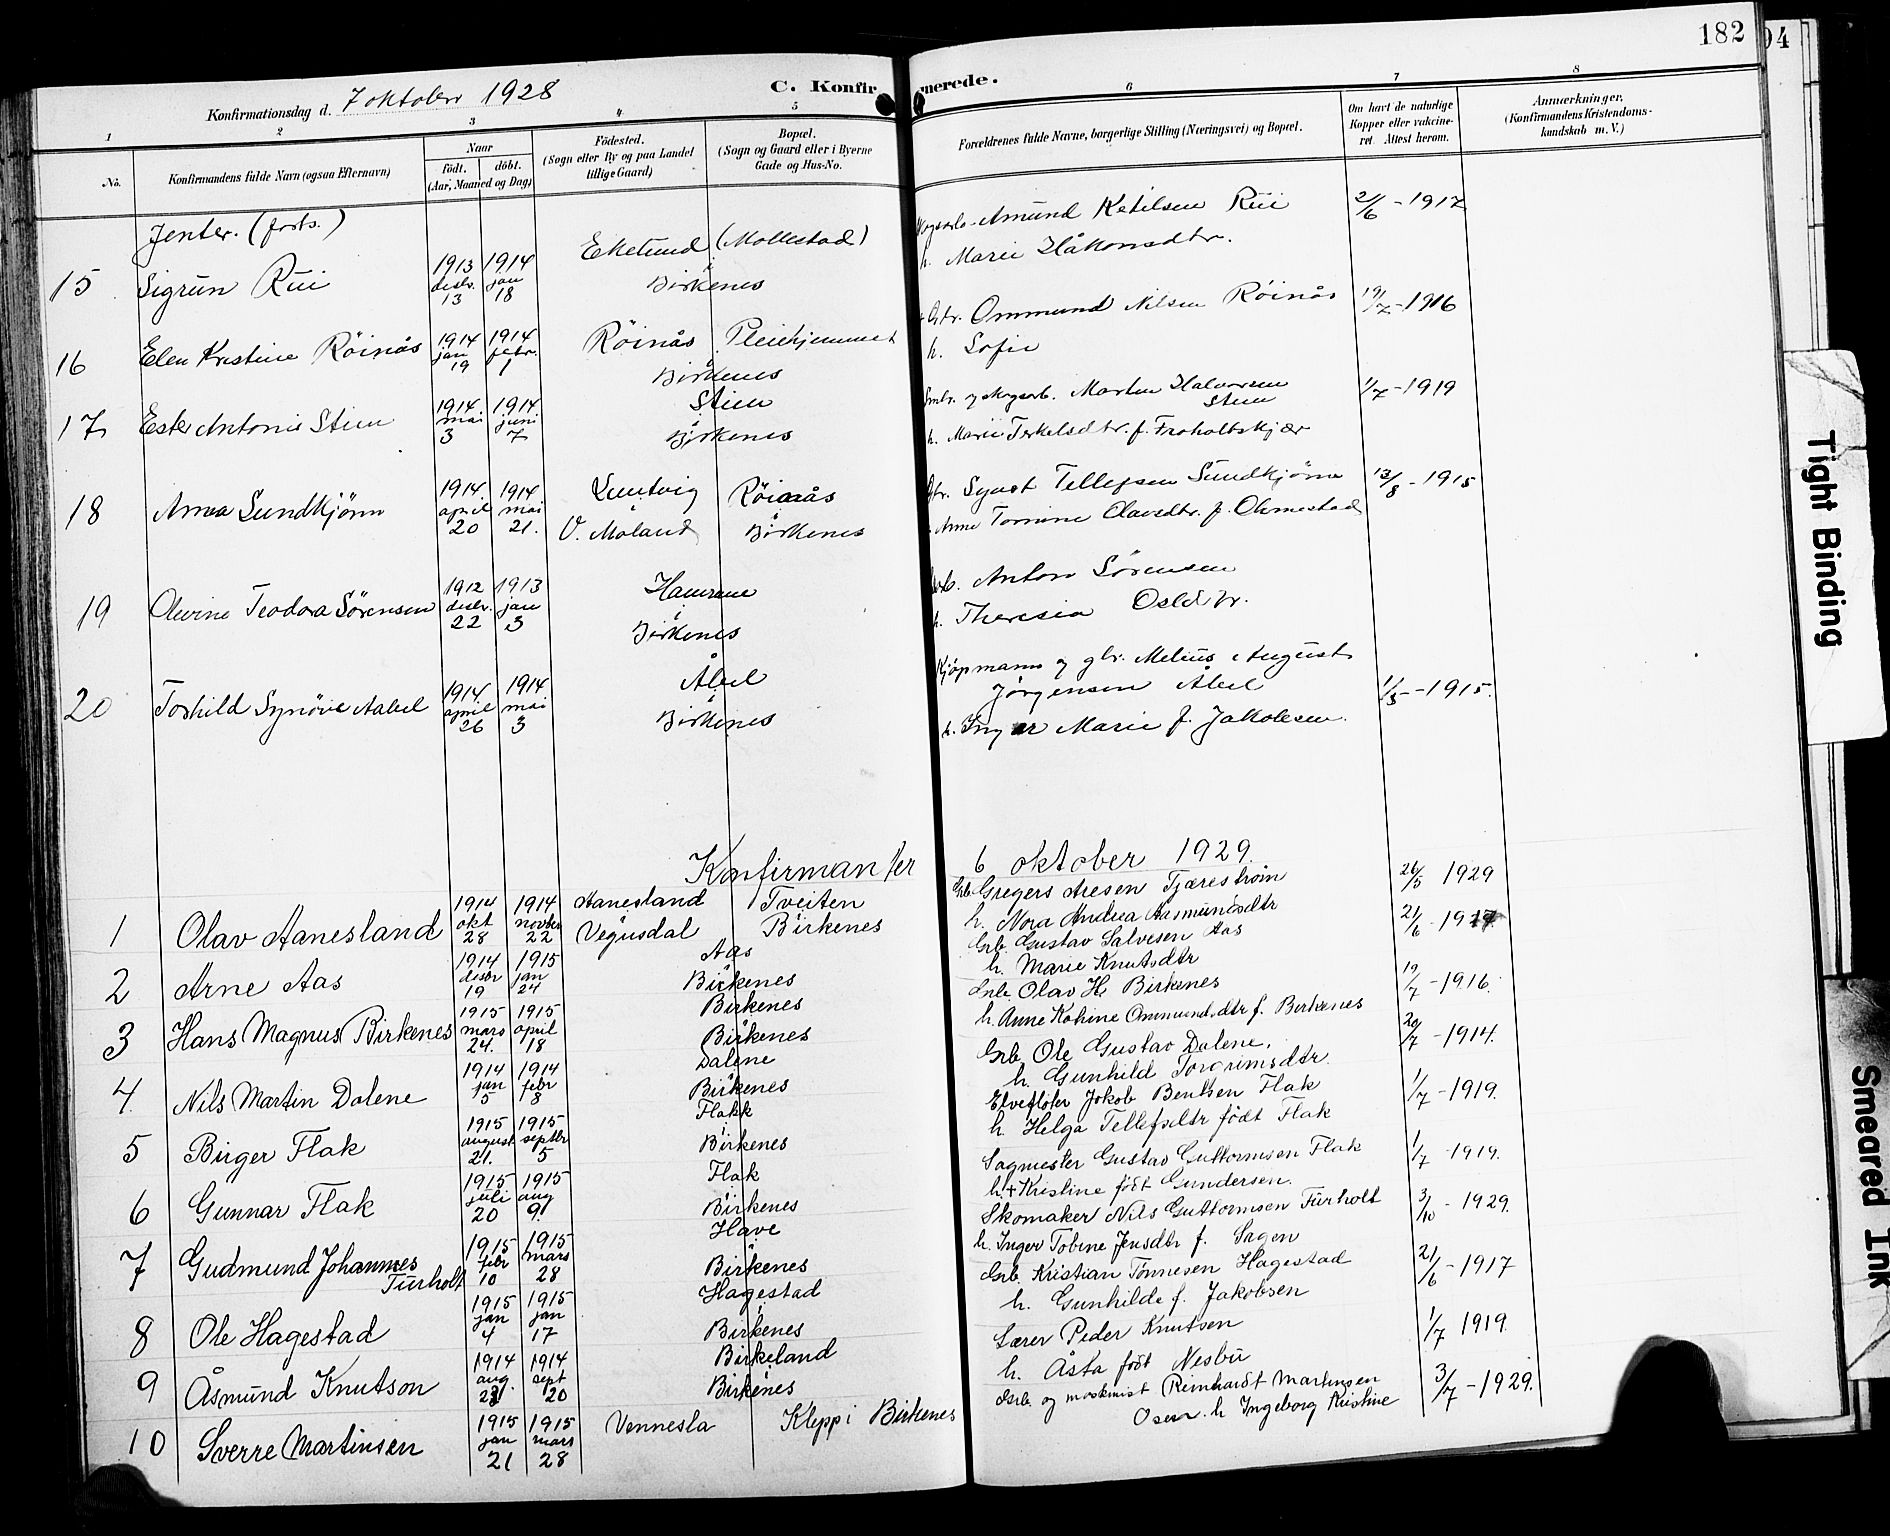 182
94
Konfirmationsdag d. 7 oktober 1928
C. Konfirmerede.
1 2 3 4 5 6 7 8
No.
Konfirmandens fulde Navn (ogsaa Efternavn)
Naar
födt. döbt.
(Aar, Maaned og Dag)
Födested.
(Sogn eller By og paa Landet
tillige Gaard)
Bopæl.
(Sogn og Gaard eller i Byerne
Gade og Hus-No.
Forældrenes fulde Navne, borgerlige Stilling (Næringsvei) og Bopæl.
Om havt de naturlige
Kopper eller vakcine-
ret. Attest herom.
Anmærkninger,
(Konfirmandens Kristendoms-
kundskab m. V.)
Jenter. (forts.)
15 Sigrun Rui 1913 desbr. 13 1914 jan 18 Eikelund (Mollestad) Birkenes Amund Ketilsen Rui 2/6 - 1917
h. Marie Håkonsdtr.
16 Elen Kristine Röinås 1914 jan 19 1914 febr. 1 Röinås Pleiehjemmet Birkenes Ommund Nilsen Röinås 19/7 - 1916
h. Sofie
17 Ester Antonie Stien 1914 mai 3 1914 juni 7 Stien Birkenes Smbr. og skogsarb. Morten Halvorsen Stien 1/7 - 1919
h. Marie Terkelsdtr. f. Froholtskjær
18 Anna Sundkjönn 1914 april 20 1914 mai 21. V. Moland Röinås Birkenes Gbr. Tellefsen Sundkjönn 13/8 - 1915
Anne Tomine Olavsdtr. f. Ormestad
19 Olevine Teodora Sörensen 1912 desbr. 22 1913 jan 3 Birkenes Anton Sörensen
h. Theresia Osldtr.
20 Torhild Synöve Aabel 1914 april 26 1914 mai 3 Åbel Birkenes Kjöpmann og gbr. Melius August
Jörgensen Åbel 1/5 - 1915.
h. Inger Marie f. Jakobsen.
Konfirmanter 6 oktober 1929.
1 Olav Aanesland 1914 okt 28 1914 novber 22 Aanesland Vegusdal Tveiten Birkenes Grb. Gregers Aresen Tjæreströin 26/5 1929
h. Nora Andrea Aasmundsdtr
2 Arne Aas 1914 desbr 19 1915 jan 24 Aas Birkenes Grb. Gustav Salvesen Aas 21/6 - 1917
h. Marie Knutsdtr
3 Hans Magnus Birkenes 1915 mars 24. 1915 april 18 Birkenes Birkenes Grb. Olav H. Birkenes 19/7 - 1916.
h. Anne Katrine Ommundsdtr f. Birkenes
4. Nils Martin Dalene 1914 jan 5 1914 febr 8 Dalene Birkenes Grb. Ole Gustav Dalene. 20/7 - 1914.
h. Gunhild Torgrimsdtr.
5 Birger Flak 1915 august 21. 1915 septbr 5 Flakk Birkenes Elvefloter Jakob Bentsen Flak 1/7 - 1919.
h Helga Tellefsdtr födt Flak
6 Gunnar Flak 1915 juli 20 1915 aug 9. Flak Birkenes Sagmester Gustav Guttormsen Flak 1/7 - 1919.
h. + Kristine födt Gundersen.
7 Gudmund Johannes Furholt 1915 febr 10 1915 mars 28 Have Birkenes Skomaker Nils Guttormsen Furholt 3/10 - 1929.
h. Inger Tobine Jensdtr f. Sagen
8 Ole Hagestad 1915 jan 4 1915 jan 17 Hagestad Birkenes Grb. Kristian Tönnesen Hagestad 21/6 - 1917
h. Gunhilde f. Jakobsen
9 Åsmund Knutson 1914 aug. 1914 sept 20 Birkeland Birkenes Lærer Peder Knutsen 1/7 1919.
h. Åsta födt Nesbu
10 Sverre Martinsen 1915 jan 21 1915 mars 28 Vennesla Klepp i Birkenes Grb. og maskinist Reinhardt Martinsen 3/7 - 1929.
h Ingeborg Kristine
Tight Binding
Smeared Ink